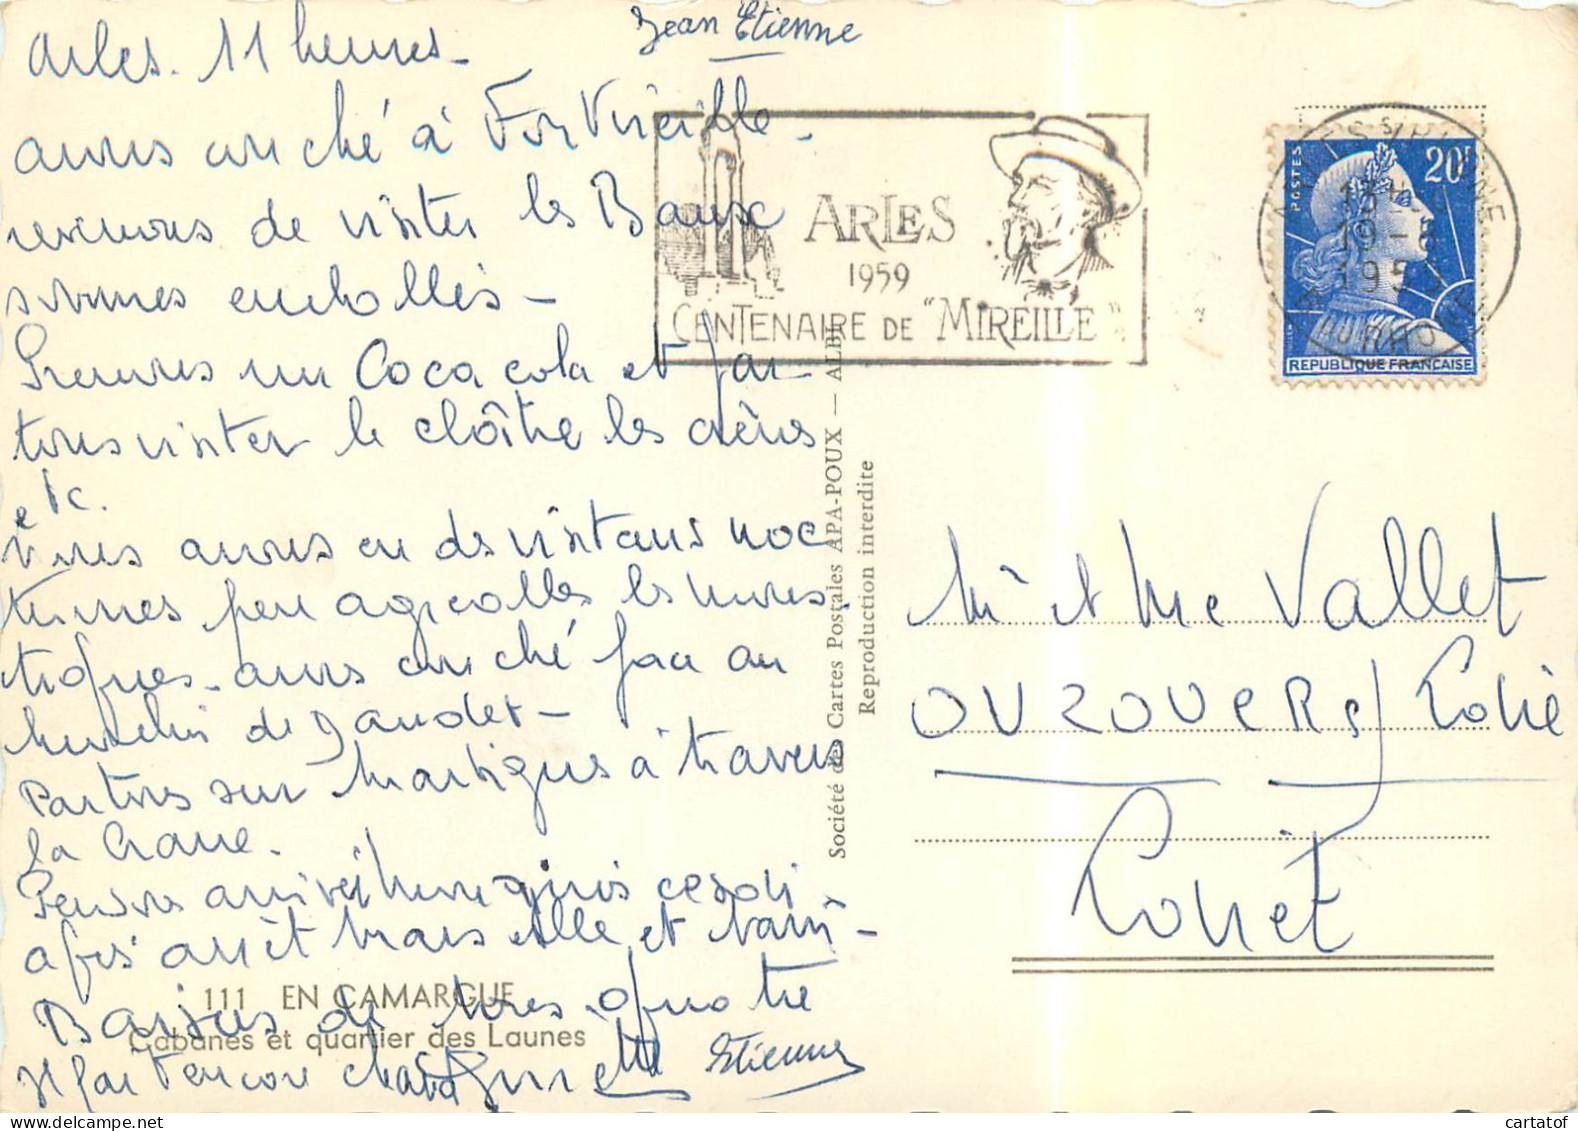 Jean Etienne
Arles. 11 heures -
avons couché à Fontvieille -
revenons de visiter les Baux
sommes emballés -
Prenons un Coca cola et par
tons visiter le cloître les arènes
etc.
Nous avons eu des visitans noc
turnes peu agréables les mous.
tiques. avons couché face au
moulin de Daudet -
Partons sur Martigues à travers
la Crau.
Pensons arriver ce soir
après arrêt Marseille et
Baisers de nous quatre
Il fait encore chaud Ginette Etienne
ARLES
1959
CENTENAIRE DE "MIREILLE"
POSTES
20F
REPUBLIQUE FRANÇAISE
Société des Cartes Postales APA-POUX — ALBI
Reproduction interdite
Mr et Mme Vallet
OUZOUER s/ Loire
Loiret
111 EN CAMARGUE
Cabanes et quartier des Launes
cartatof